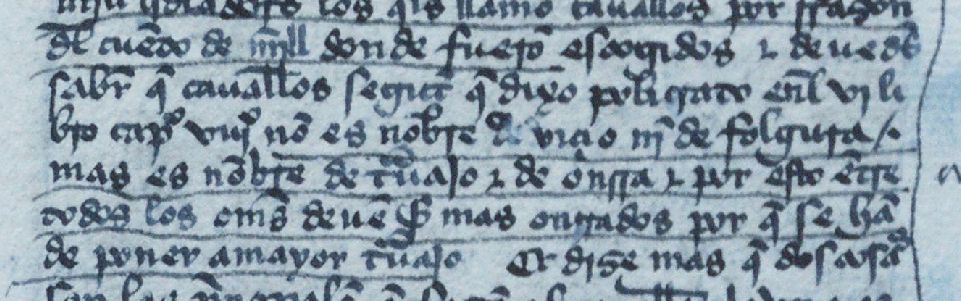 los q̃les llamo cauallos por rrazon
dl cuẽto de mĩll donde fuerõ escogidos ⁊ deuedes
sabr̃ q̃ cauall̃os segũt q̃ dixo policrato enl̃ vj li
bro cap̃o viijo nõ es nõbre de vicio nĩ de folgura /.
mas es nõbre de t̃uajo ⁊ de onrra ⁊ por esto ẽtre
todos los om̃s deuẽ ser mas onrrados por q̃ se hã
de poner a mayor t̃uajo Et dize mas q̃ dos cosas
son las